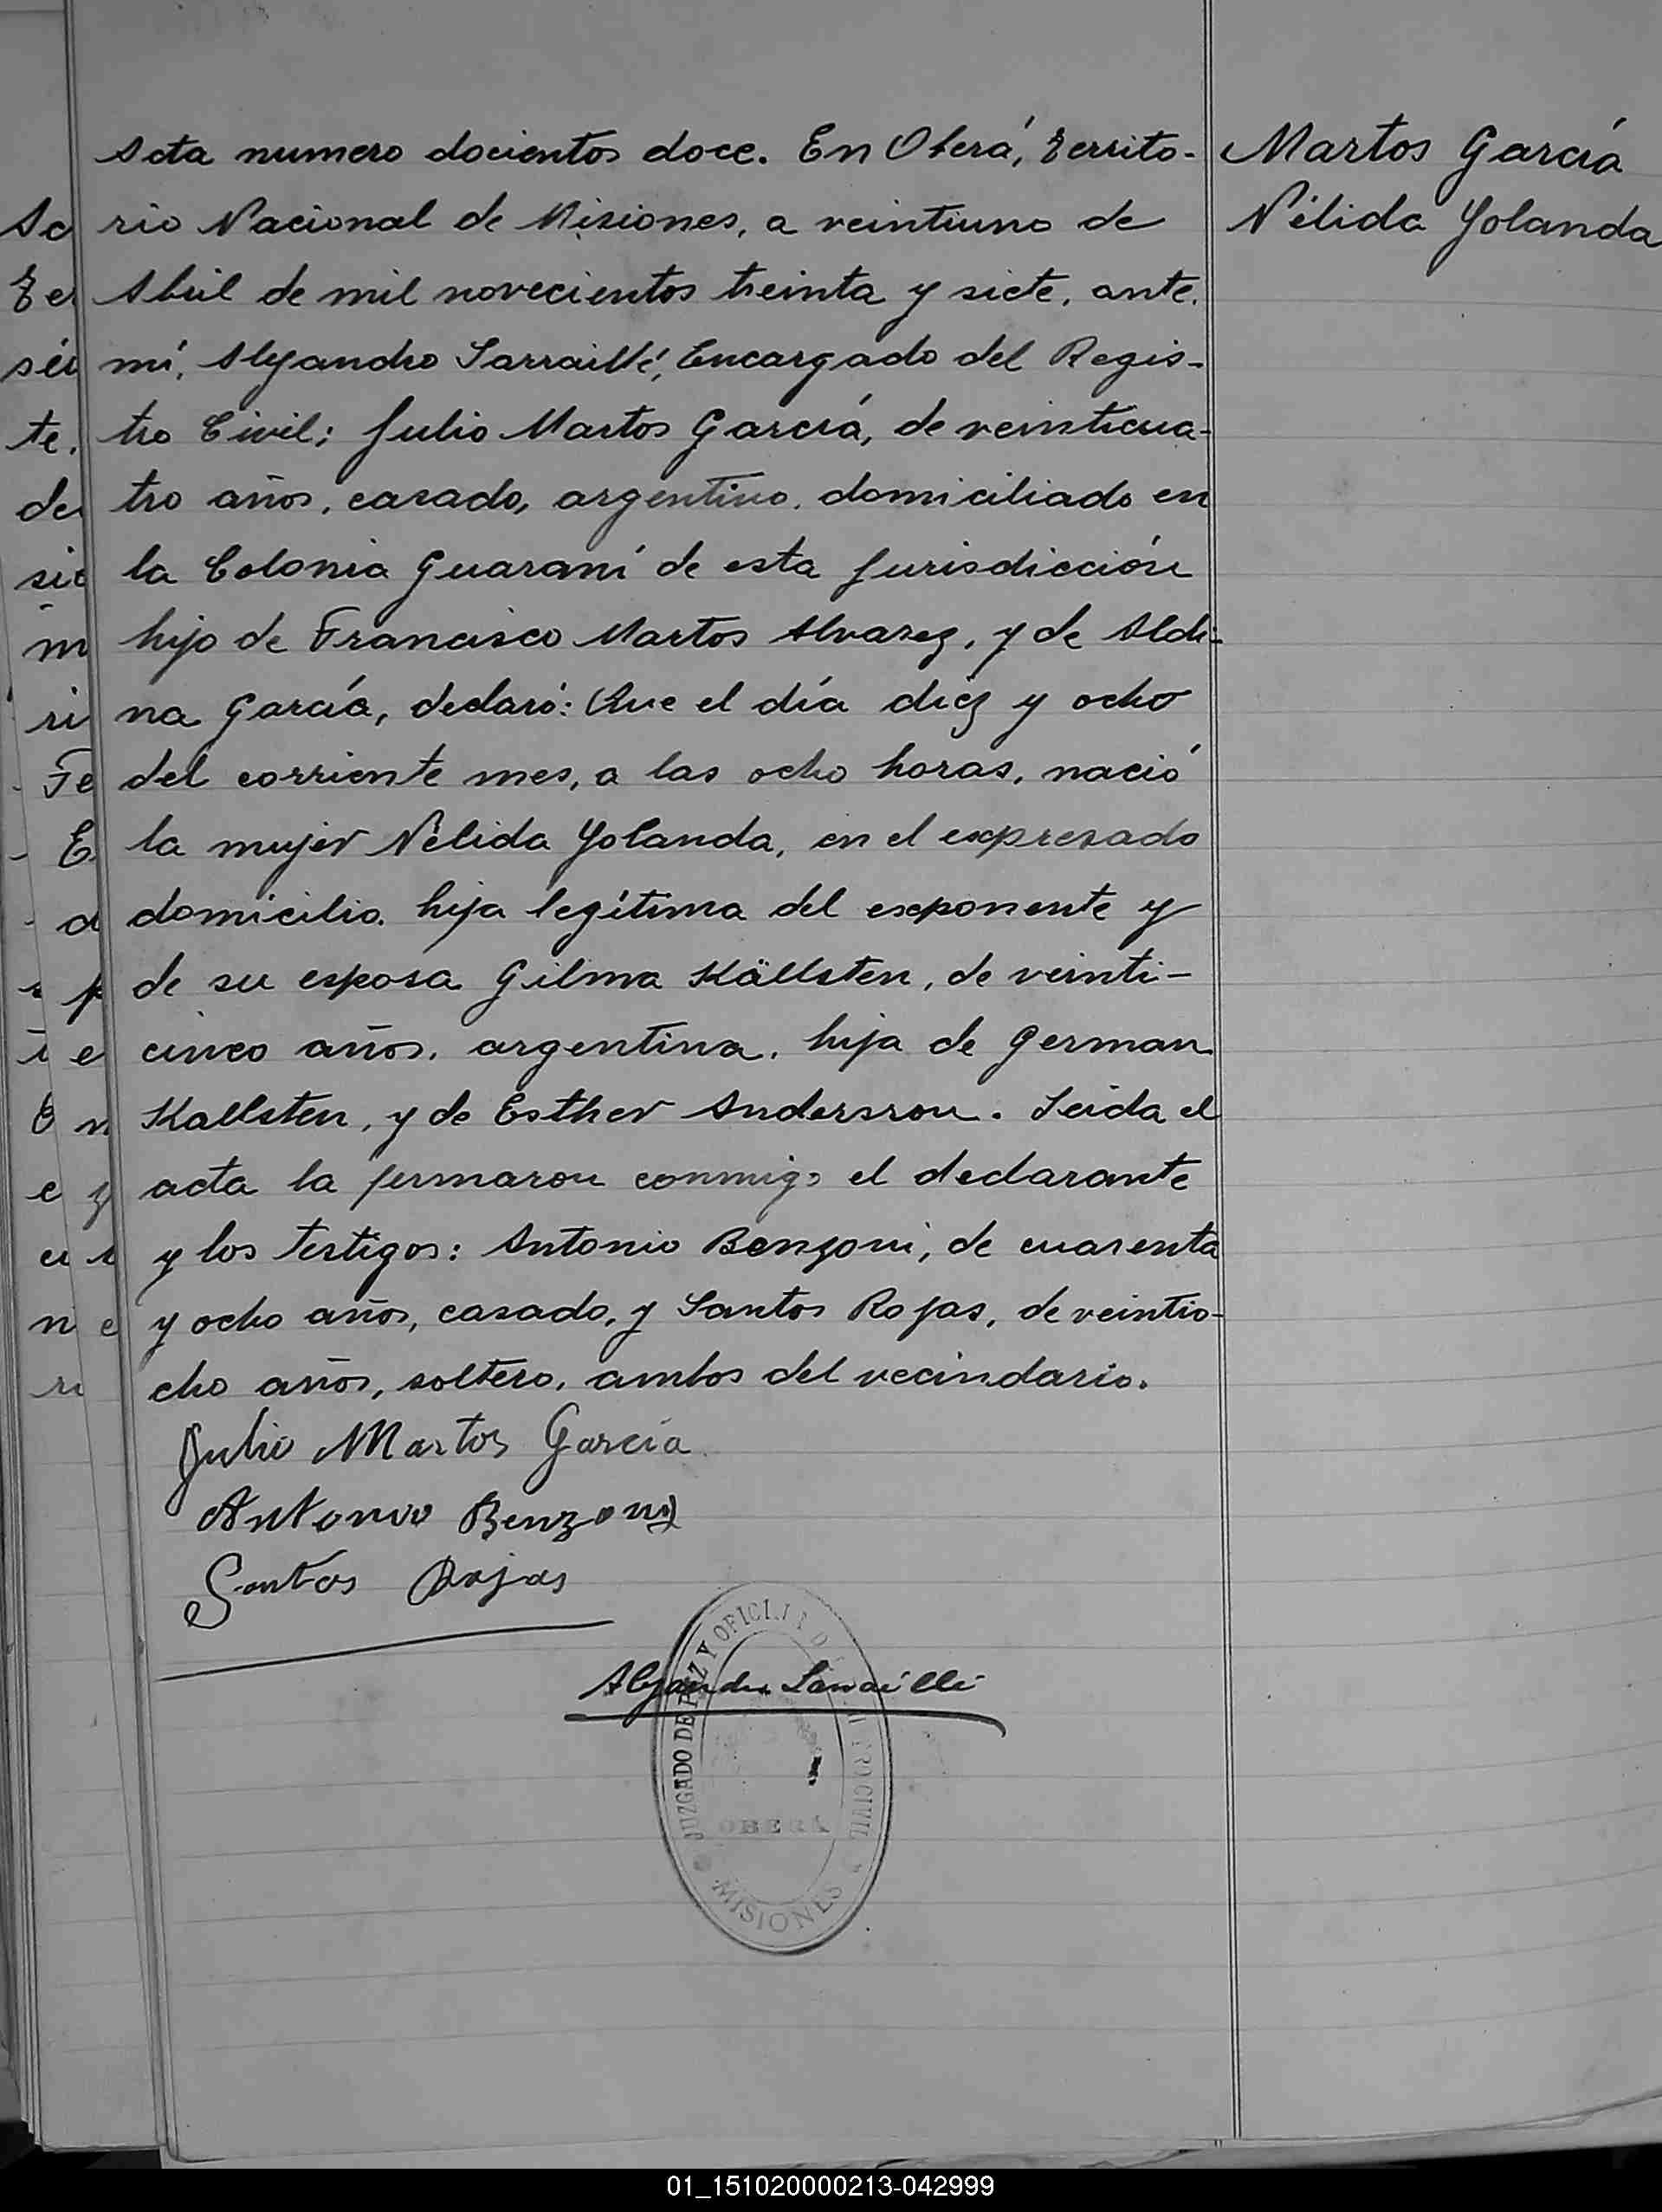 Acta numero docientos doce. En Oberá, Territo-
rio Nacional de Misiones, a veintiuno de
Abril de mil novecientos treinta y siete, ante
mí, Alejandro Sarraillé, Encargado del Regis-
tro Civil; Julio Martos García, de veinticua-
tro años, casado, argentino, domiciliado en
la Colonia Guaraní de esta jurisdicción
hijo de Francisco Martos Alvarez, y de Aldi-
na García, declaró: Que el día diez y ocho
del corriente mes, a las ocho horas, nació
la mujer Nélida Yolanda, en el expresado
domicilio. hija legítima del exponente y
de su esposa Gilma Källsten, de veinti-
cinco años, argentina, hija de German
Kallsten, y de Esther Andersson. Leida el
acta la firmaron conmigo el declarante
y los testigos: Antonio Benzoni, de cuarenta
y ocho años, casado, y Santos Rojas, de veintio-
cho años, soltero, ambos del vecindario.
Julio Martos García
Antonio Benzoni
Santos Rojas
Alejandro Sarraillé
JUZGADO DE PAZ Y OFICINA
CIVIL
OBERÁ
MISIONES
Martos García
Nélida Yolanda
01_151020000213-042999